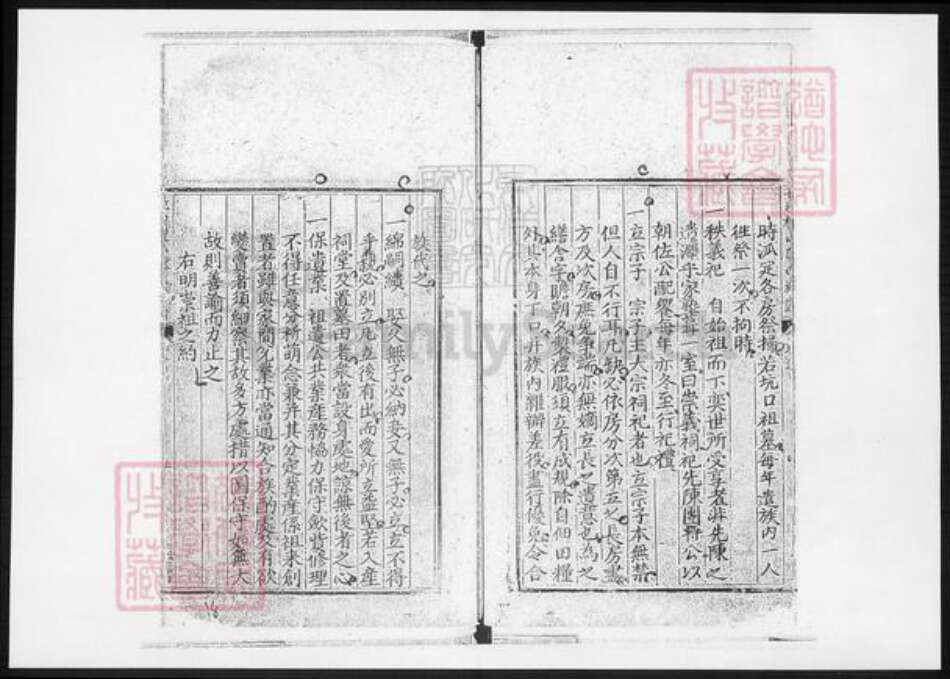 時派定各房祭掃若坑口祖墓每年遣族内一人
徃祭一次不拘時
一秩義祀 自始祖而下奕世所受享者莊先陳之
遺澤乎家塾一室曰崇義祠祀先陳團釋公以
朝佐公配饗每年亦冬至行祀禮
一立宗子 宗子主大宗祠祀者也立宗子本無禁
但人自不行耳凡缺必依房分次第立之長房盡
方及次房庶免爭端亦無嫡立長之遺意也為之
繕舍宇贍朝夕製禮服須立有成規除自佃田糧
外其本身丁口并族内雜辦差役盡行優免合合
族代之
一綿嗣續 娶久無子必納妾又無子必立立不得
乎親必別立凡立後有出而愛所立益堅若入產
祠堂及置墓田者衆當設身處地諒無後者之心
一保遺業 祖遺公共業產務恊力保守歛貲修理
不得任意分析萌念兼并其分定業產係祖来創
置者雖與家間允業亦當通知合族酌處及有欲
變賣者須細察其故多方處措以圖保守如無大
故則善諭而力止之
右明宗祖之約